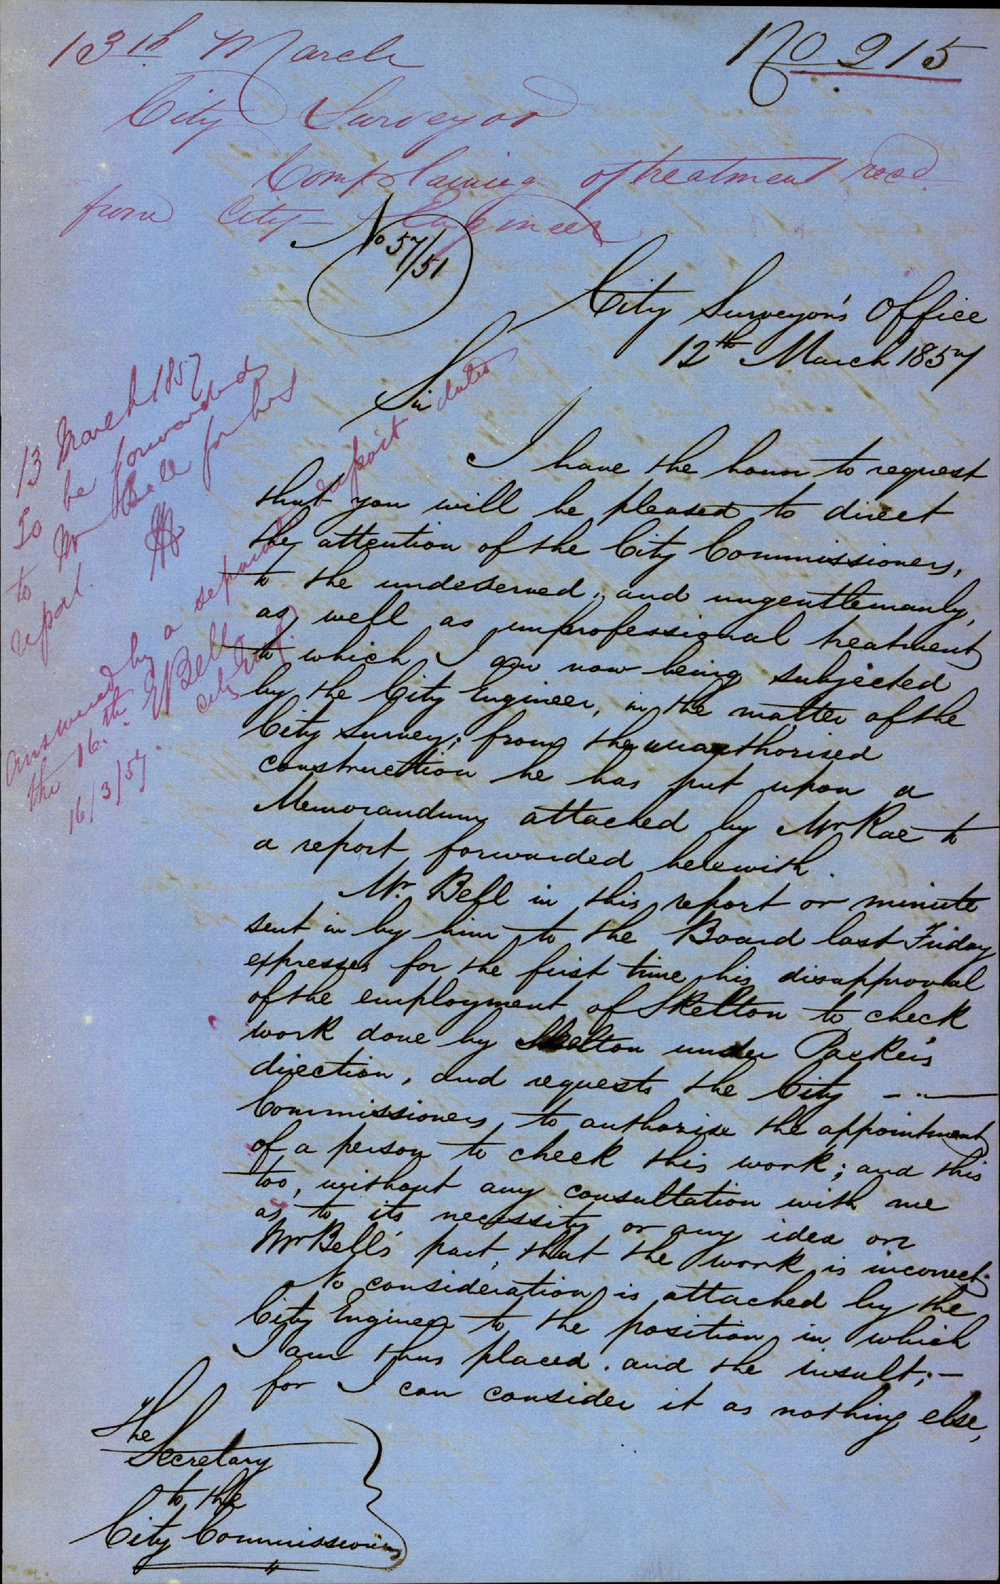 13th March
No 215
City Surveyor
Complaining of treatment recd
from City Engineer
No 57/51
City Surveyor's Office
12th March 1857
Sir
I have the honor to request
that you will be pleased to direct
the attention of the City Commissioners,
to the undeserved, and ungentlemanly,
as well as unprofessional treatment
to which I am now being subjected
by the City Engineer, in the matter of the
City Survey; from the unauthorised
construction he has put upon a
Memorandum attached by Mr Rae to
a report forwarded herewith.
Mr. Bell in this report or minute
sent in by him to the Board last Friday
expresses for the first time his disapproval
of the employment of Skelton to check
work done by Skelton under Packer's
direction, and requests the City
Commissioners to authorise the appointment
of a person to check this work; and this
too, without any consultation with me
as to its necessity or any idea on
Mr Bell's part, that the work is incorrect.
No consideration is attached by the
City Engineer to the position in which
I am thus placed. and the insult; —
for I can consider it as nothing else,
The
Secretary
to the
City Commissioners
13 March 1857
To be forwarded
to Mr Bell for his
report.
Answered by a separate report dated
the 16th. Bell
City Engr
16/3/57.